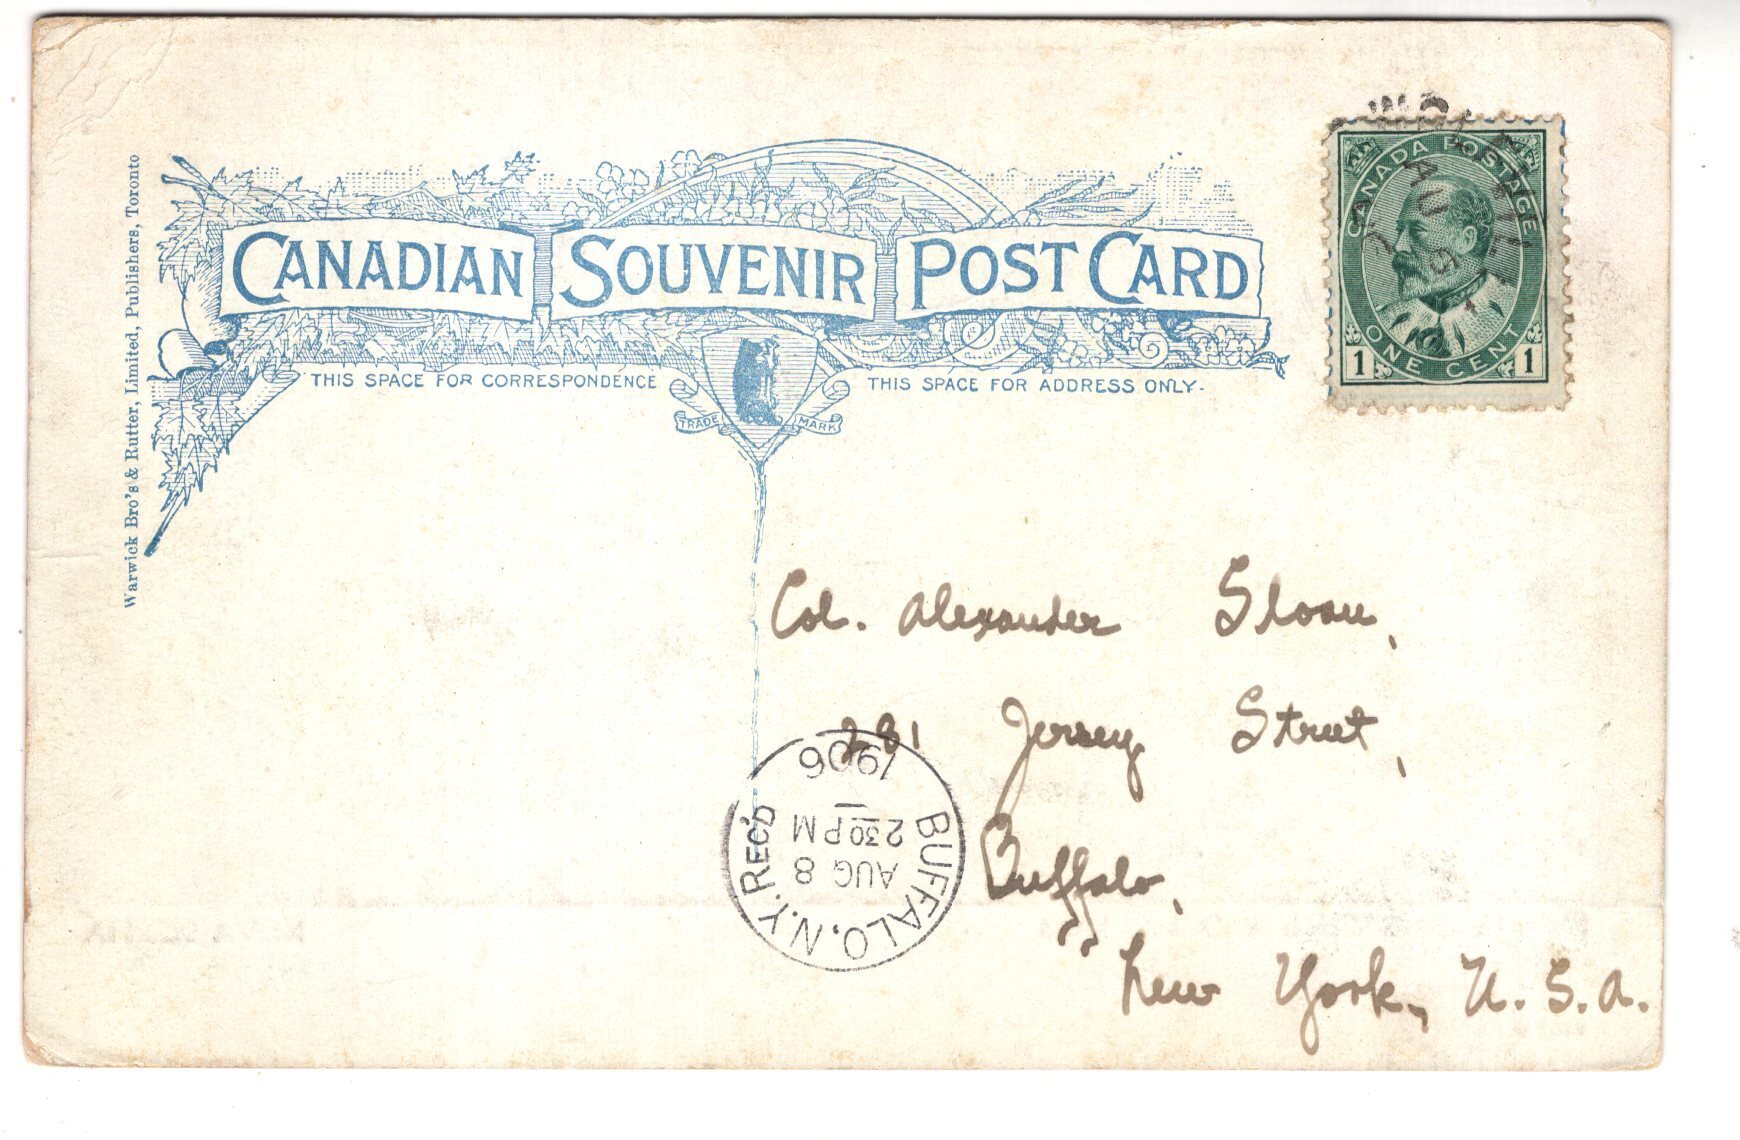 CANADIAN SOUVENIR POST CARD
THIS SPACE FOR CORRESPONDENCE
THIS SPACE FOR ADDRESS ONLY.
TRADE MARK
Warwick Bro's & Rutter, Limited, Publishers, Toronto
CANADA POSTAGE
ONE CENT
1 1
AU 6
Col. Alexander Sloan,
281 Jersey Street,
Buffalo,
New York, U. S. A.
BUFFALO, N.Y. REC'D
AUG 8
2 30 PM
1906